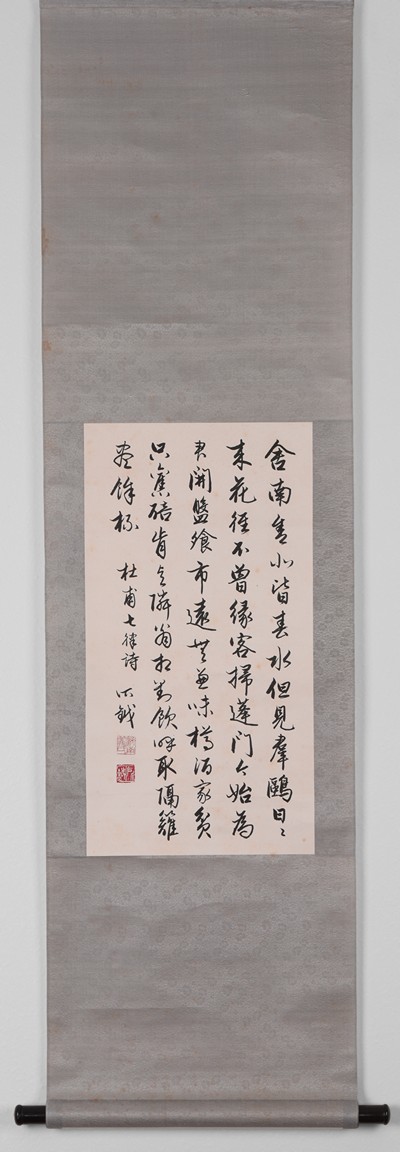 舍南舍北皆春水但見羣鷗日〻
來花徑不曾緣客掃蓬門今始為
君開盤飧市遠無兼味樽酒家貧
只舊醅肯与隣翁相對飲呼取隔籬
盡餘杯
杜甫七律詩